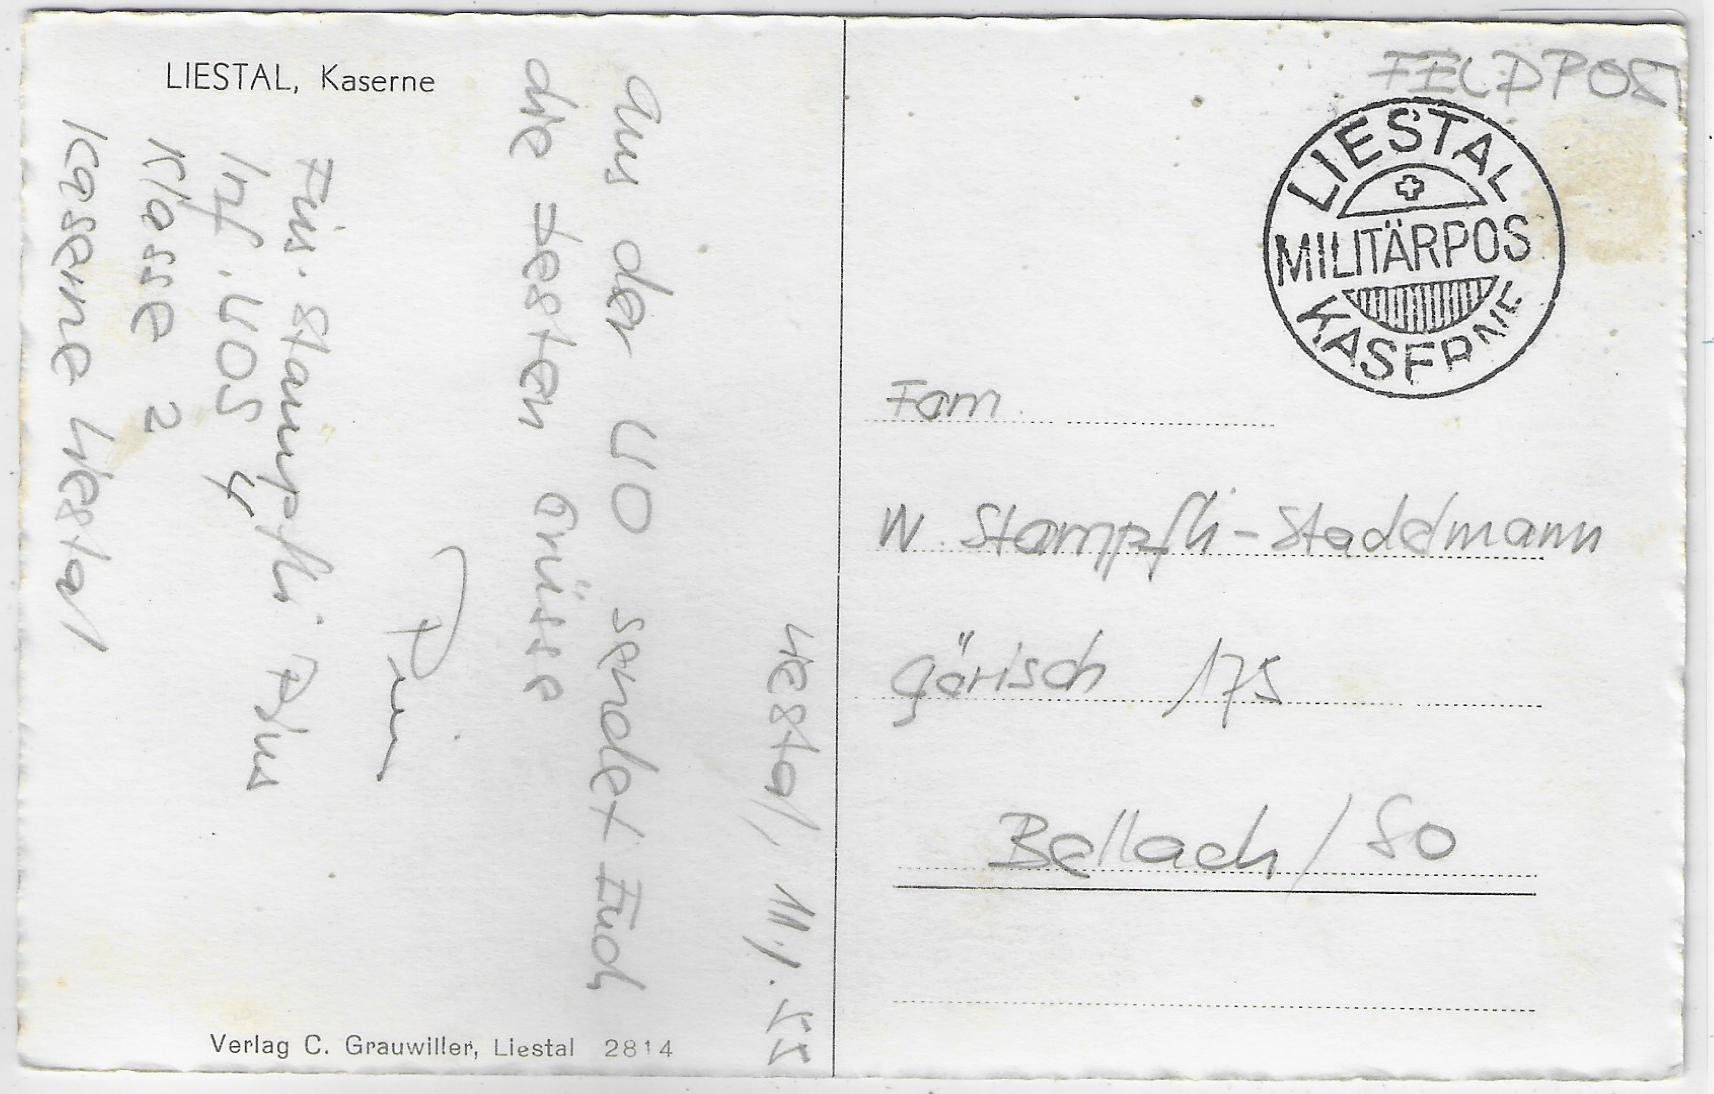 LIESTAL, Kaserne
Liestal, 11.1.55
Aus der UO sendet Euch
die besten Grüsse
Füs. Stampfli
Inf. UOS 4
Klasse 2
Kaserne Liestal
Verlag C. Grauwiller, Liestal 2814
FELDPOST
LIESTAL
MILITÄRPOS
KASERNE
Fam.
W. Stampfli-Staddmann
Görisch 175
Bellach / SO